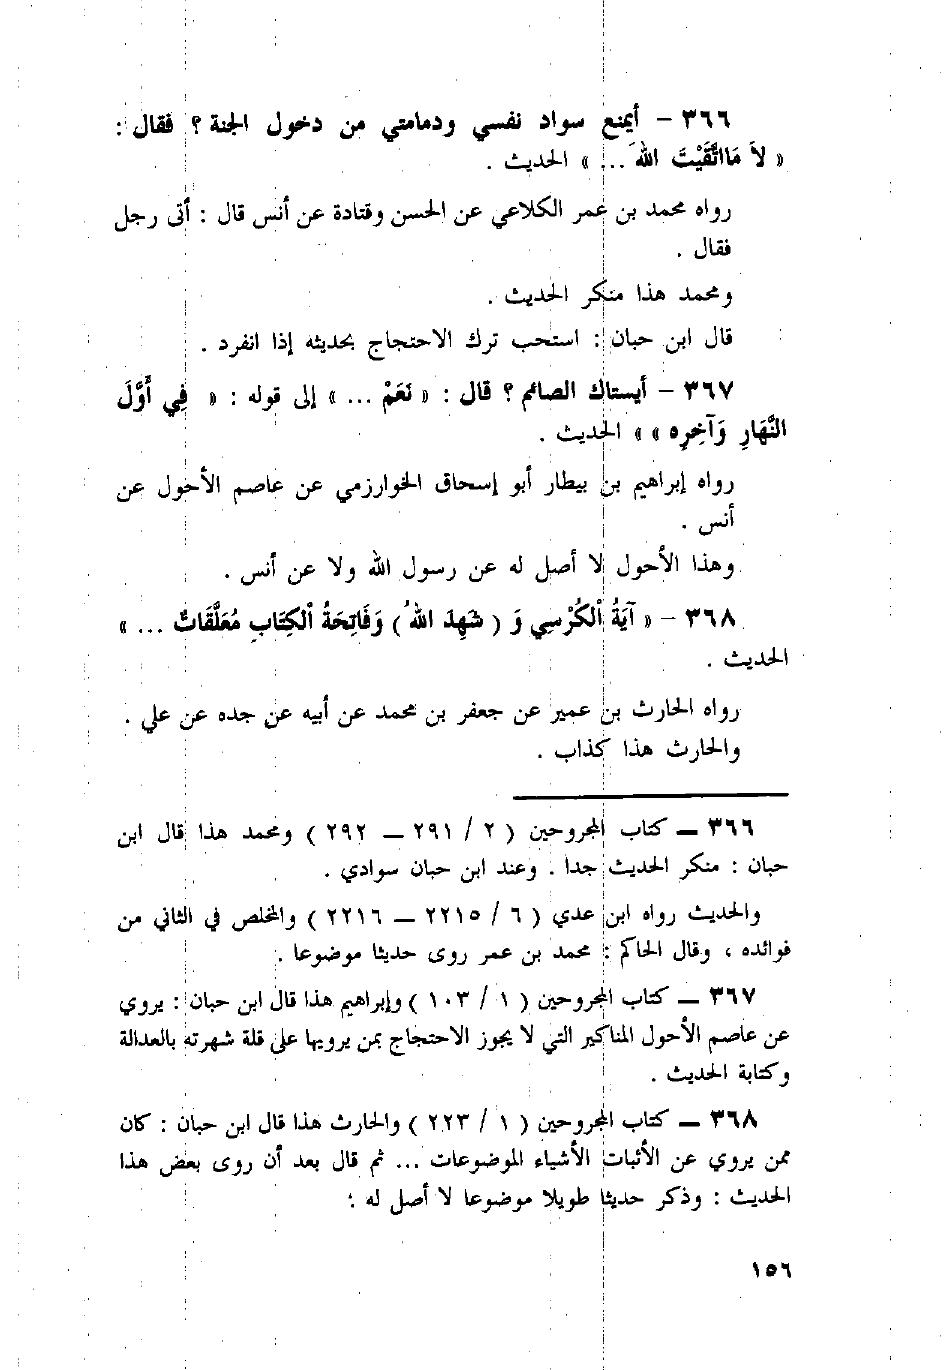 ٣٦٦ - أيمنع سواد نفسي ودمامتي من دخول الجنة ؟ فقال :
« لاَ مَااتَّقَيْتَ اللهَ ... » الحديث .
رواه محمد بن عمر الكلاعي عن الحسن وقتادة عن أنس قال : أتى رجل
فقال .
ومحمد هذا منكر الحديث .
قال ابن حبان : استحب ترك الاحتجاج بحديثه إذا انفرد .
٣٦٧ - أيستاك الصائم ؟ قال : « نَعَمْ ... » إلى قوله : « فِي أَوَّلَ
النَّهَارِ وَآخِرِه » » الحديث .
رواه إبراهيم بن بيطار أبو إسحاق الخوارزمي عن عاصم الأحول عن
أنس .
وهذا الأحول لا أصل له عن رسول الله ولا عن أنس .
٣٦٨ - « آيَةُ ٱلكُرْسِي وَ ( شَهِدَ اللهُ ) وَفَاتِحَةُ ٱلكِتَابِ مُعَلَّقَاتٌ ... »
الحديث .
رواه الحارث بن عمير عن جعفر بن محمد عن أبيه عن جده عن علي .
والحارث هذا كذاب .
٣٦٦ ــ كتاب المجروحين ( ٢ / ٢٩١ ــ ٢٩٢ ) ومحمد هذا قال ابن
حبان : منكر الحديث جدا . وعند ابن حبان سوادي .
والحديث رواه ابن عدي ( ٦ / ٢٢١٥ ــ ٢٢١٦ ) والمخلص في الثاني من
فوائده ، وقال الحاكم : محمد بن عمر روى حديثا موضوعا .
٣٦٧ ــ كتاب المجروحين ( ١ / ١٠٣ ) وإبراهيم هذا قال ابن حبان : يروي
عن عاصم الأحول المناكير التي لا يجوز الاحتجاج بمن يرويها على قلة شهرته بالعدالة
وكتابة الحديث .
٣٦٨ ــ كتاب المجروحين ( ١ / ٢٢٣ ) والحارث هذا قال ابن حبان : كان
ممن يروي عن الأثبات الأشياء الموضوعات ... ثم قال بعد أن روى بعض هذا
الحديث : وذكر حديثا طويلا موضوعا لا أصل له ؛
١٥٦